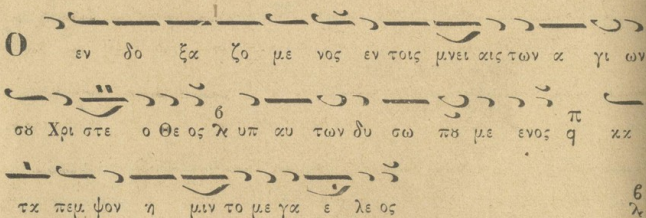 Ο εν δο ξα ζο με νος εν τοις μνει αις των α γι ων
σου Χρι στε ο Θε ος υπ αυ των δυ σω που με ενος π q κα
τα πεμ ψον η μιν το με γα ε λε ος